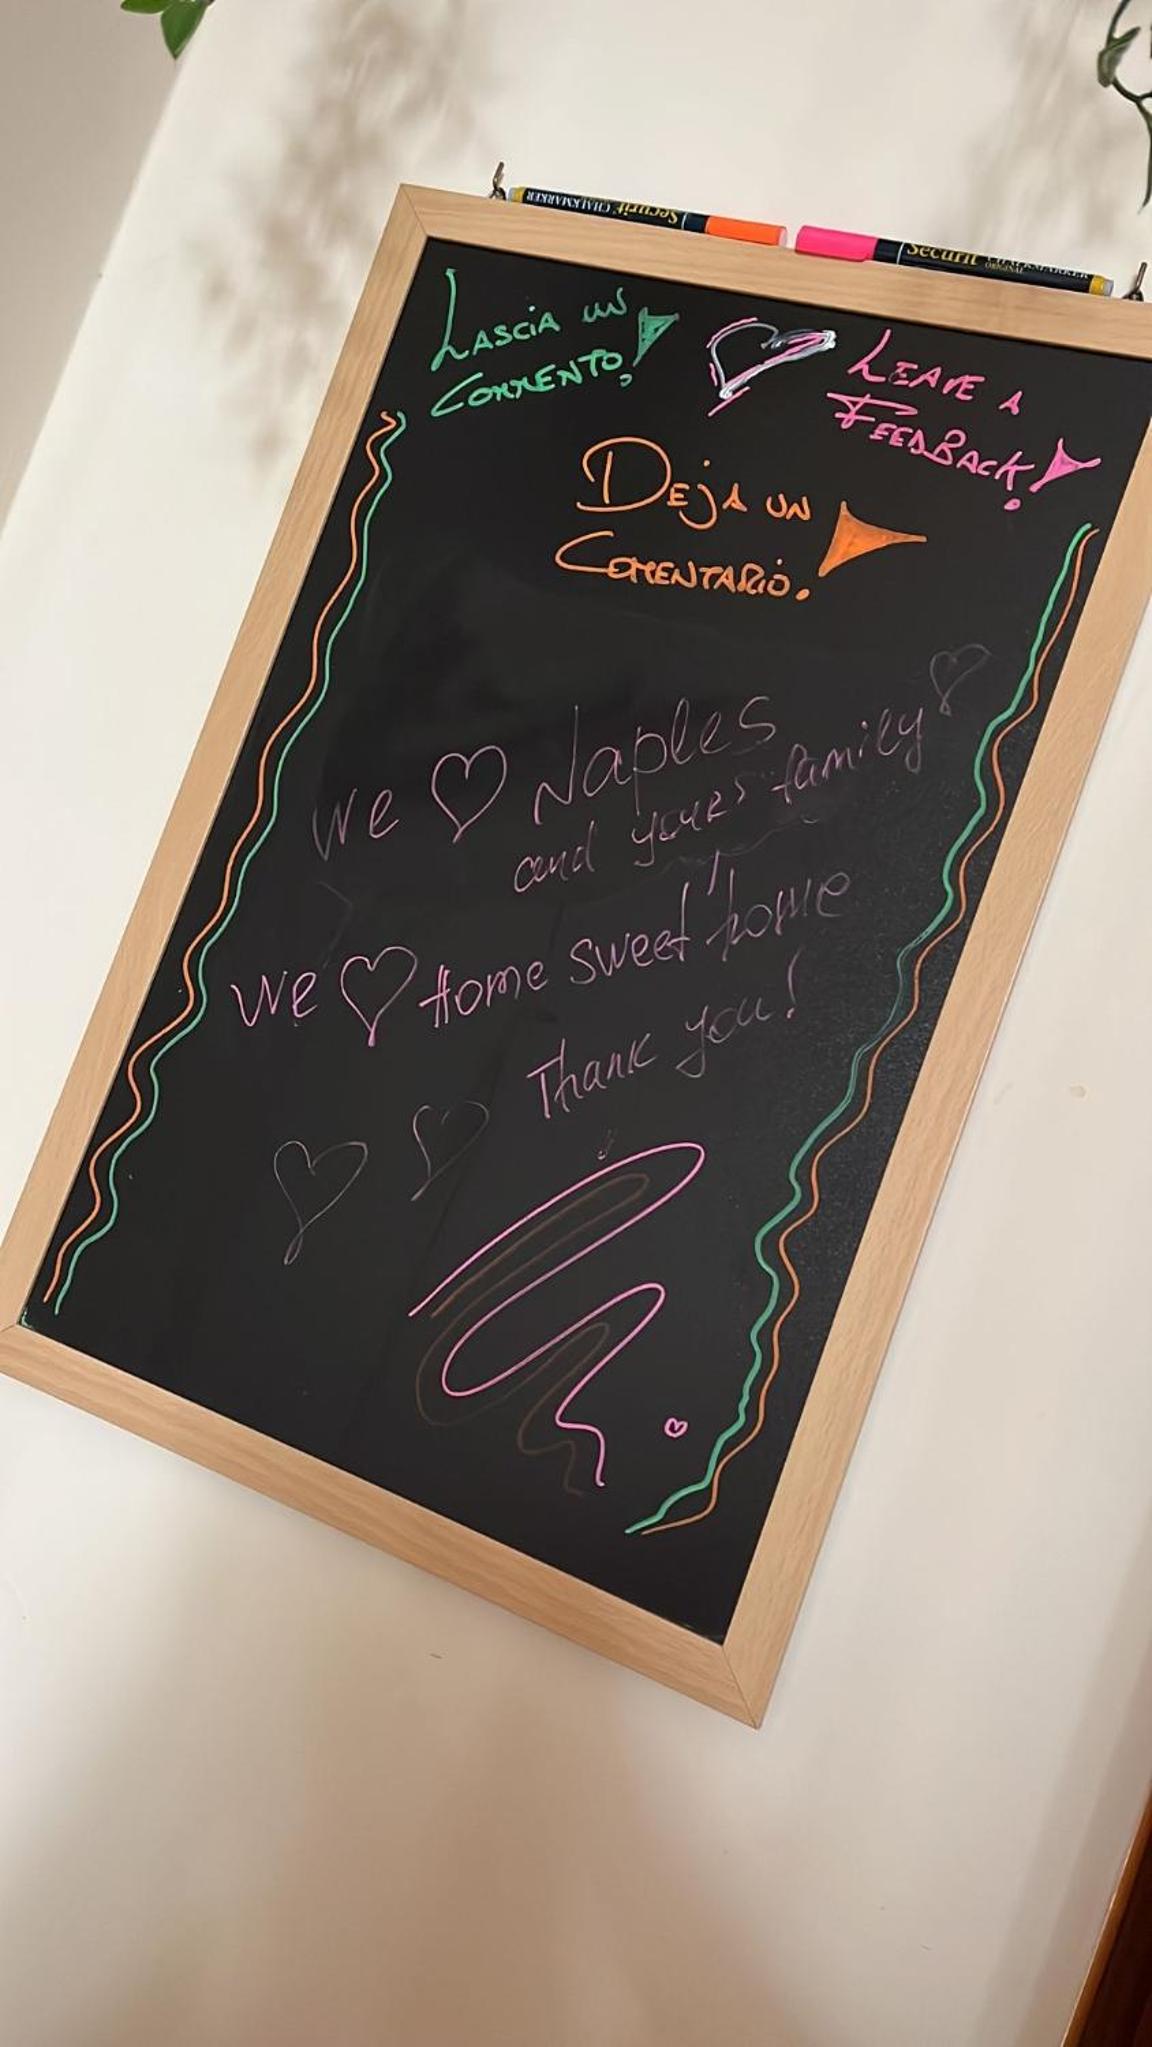 Securit CHALKMARKER
Securit CHALKMARKER
ORIGINAL
LASCIA UN
COMMENTO!
LEAVE A
FEEDBACK!
DEJA UN
COMENTARIO!
We ♡ Naples
and yours family ♡
We ♡ Home sweet home
Thank you!